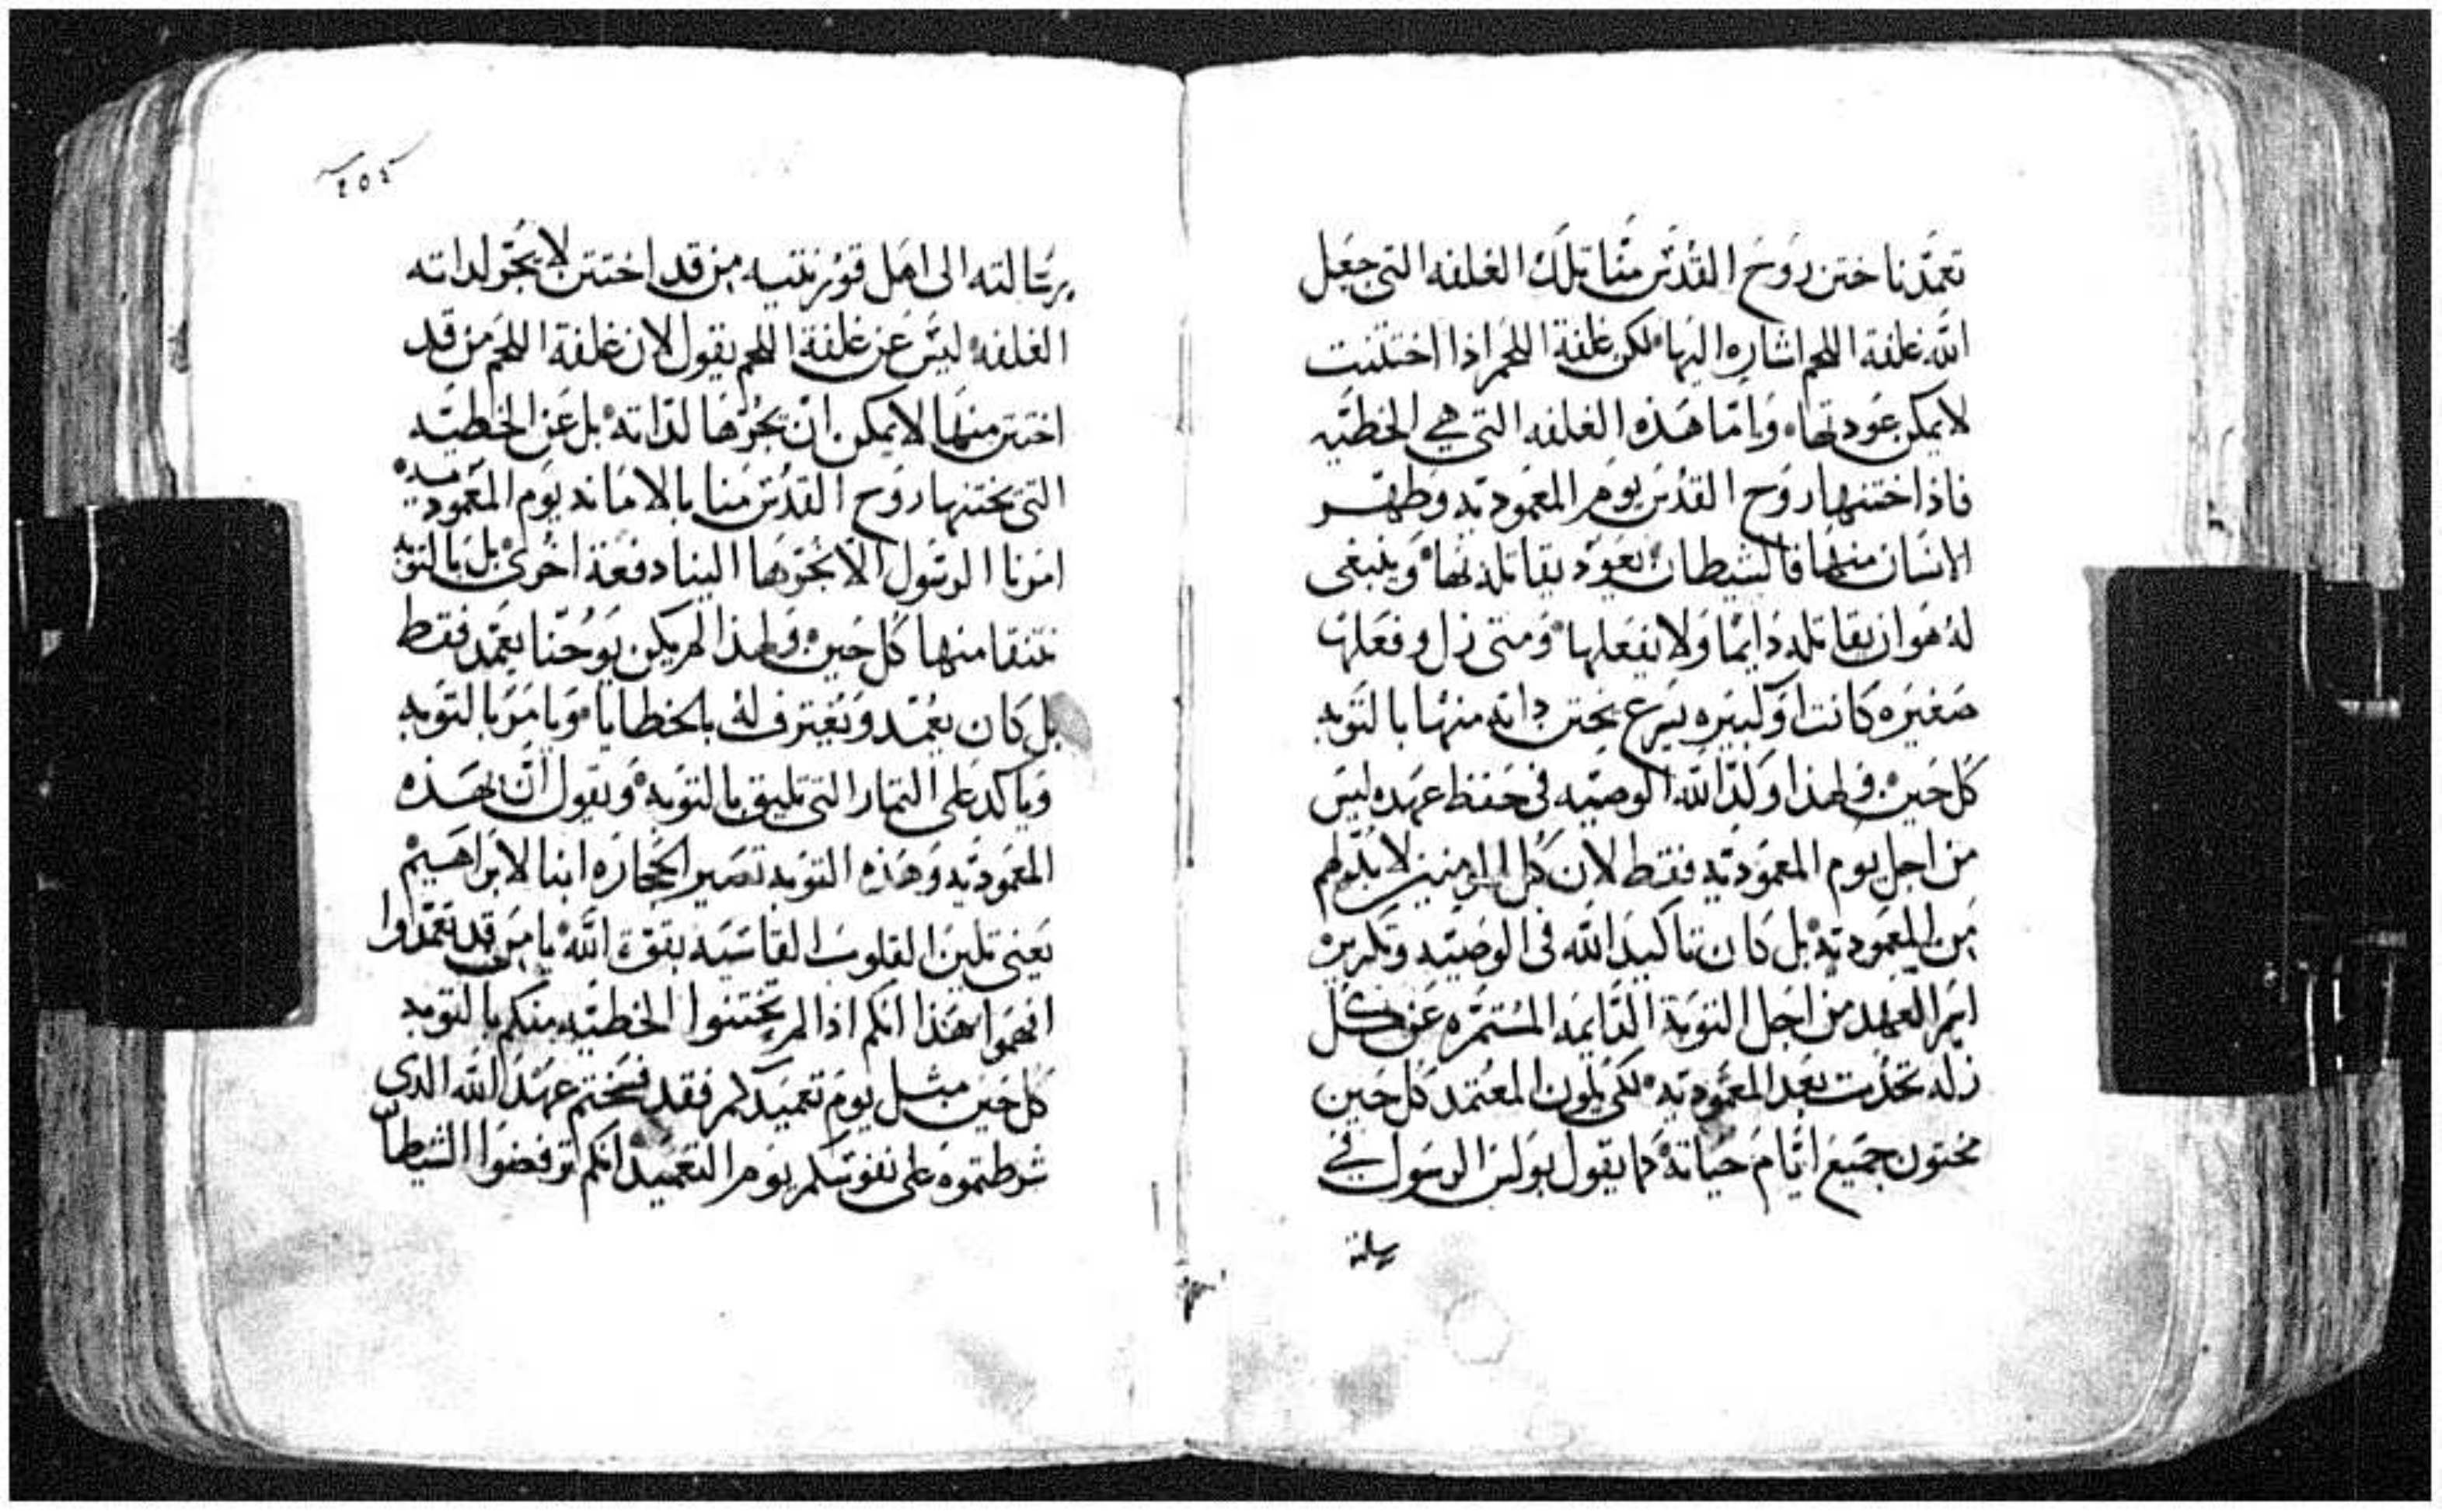 تعمدنا ختن روح القدس منا تلك الغلفه التى جعل
الله غلفة اللحم اشاره اليها لكن غلفة اللحم اذا اختتنت
لا يمكن عودتها واما هذه الغلفه التي هي الخطيه
فاذا ختنها روح القدس يوم المعموديه وطهر
الانسان منها فالشيطان يعود يقاتله بها وينبغى
له هو ان يقاتله دايما ولا يفعلها ومتى زل وفعلها
صغيره كانت او كبيره يسرع يختن داته منها بالتوبه
كل حين ولهذا وكد الله الوصيه فى حفظ عهده ليس
من اجل يوم المعموديه فقط لان كل المومنين لا بد لهم
من المعموديه بل كان تاكيد الله فى الوصيه وتكريره
اسم العهد من اجل التوبة الدايمه المستمره عن كل
زله تحدت بعد المعموديه لكى يكون المعتمد كل حين
مختون جميع ايام حياته كما يقول بولس الرسول في
رسالته
٢٥٤
برسالته الى اهل قورنتيه من قد اختتن لا يجر لداته
الغلفه ليس عن غلفة اللحم يقول لان غلفة اللحم من قد
اختتن منها لا يمكن ان يجرها لداته بل عن الخطيه
التى يختنها روح القدس منا بالامانه يوم المعموديه
امرنا الرسول الا نجرها الينا دفعة اخرى بل بالتوبه
نتنقا منها كل حين ولهذا لم يكن يوحنا يعمد فقط
بل كان يعمد ويعترف له بالخطايا ويامر بالتوبه
وياكد على التمار التى تليق بالتوبه ويقول ان بهذه
المعموديه وهذه التوبه تصير الحجاره ابنا لابراهيم
يعنى تلين القلوب القاسيه بقوة الله يا من قد تعمدوا
افهموا هذا انكم اذا لم تختنوا الخطيه منكم بالتوبه
كل حين مثل يوم تعميدكم فقد فسختم عهد الله الدى
شرطتموه على نفوسكم يوم التعميد انكم ترفضوا الشيطان